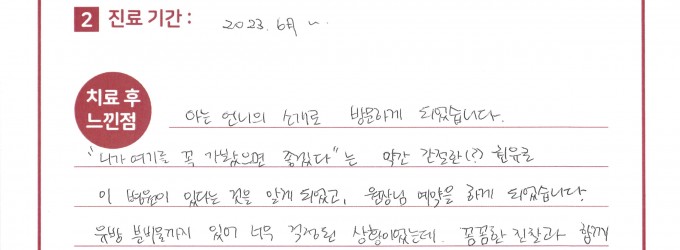 2 진료 기간 : 2023. 6月 ~.
치료 후
느낀점
아는 언니의 소개로 방문하게 되었습니다.
"니가 여기를 꼭 가봤으면 좋겠다"는 약간 간절한(?) 권유로
이 병원이 있다는 것을 알게 되었고, 원장님 예약을 하게 되었습니다.
유방 분비물까지 있어 너무 걱정된 상황이었는데. 꼼꼼한 진찰과 함께